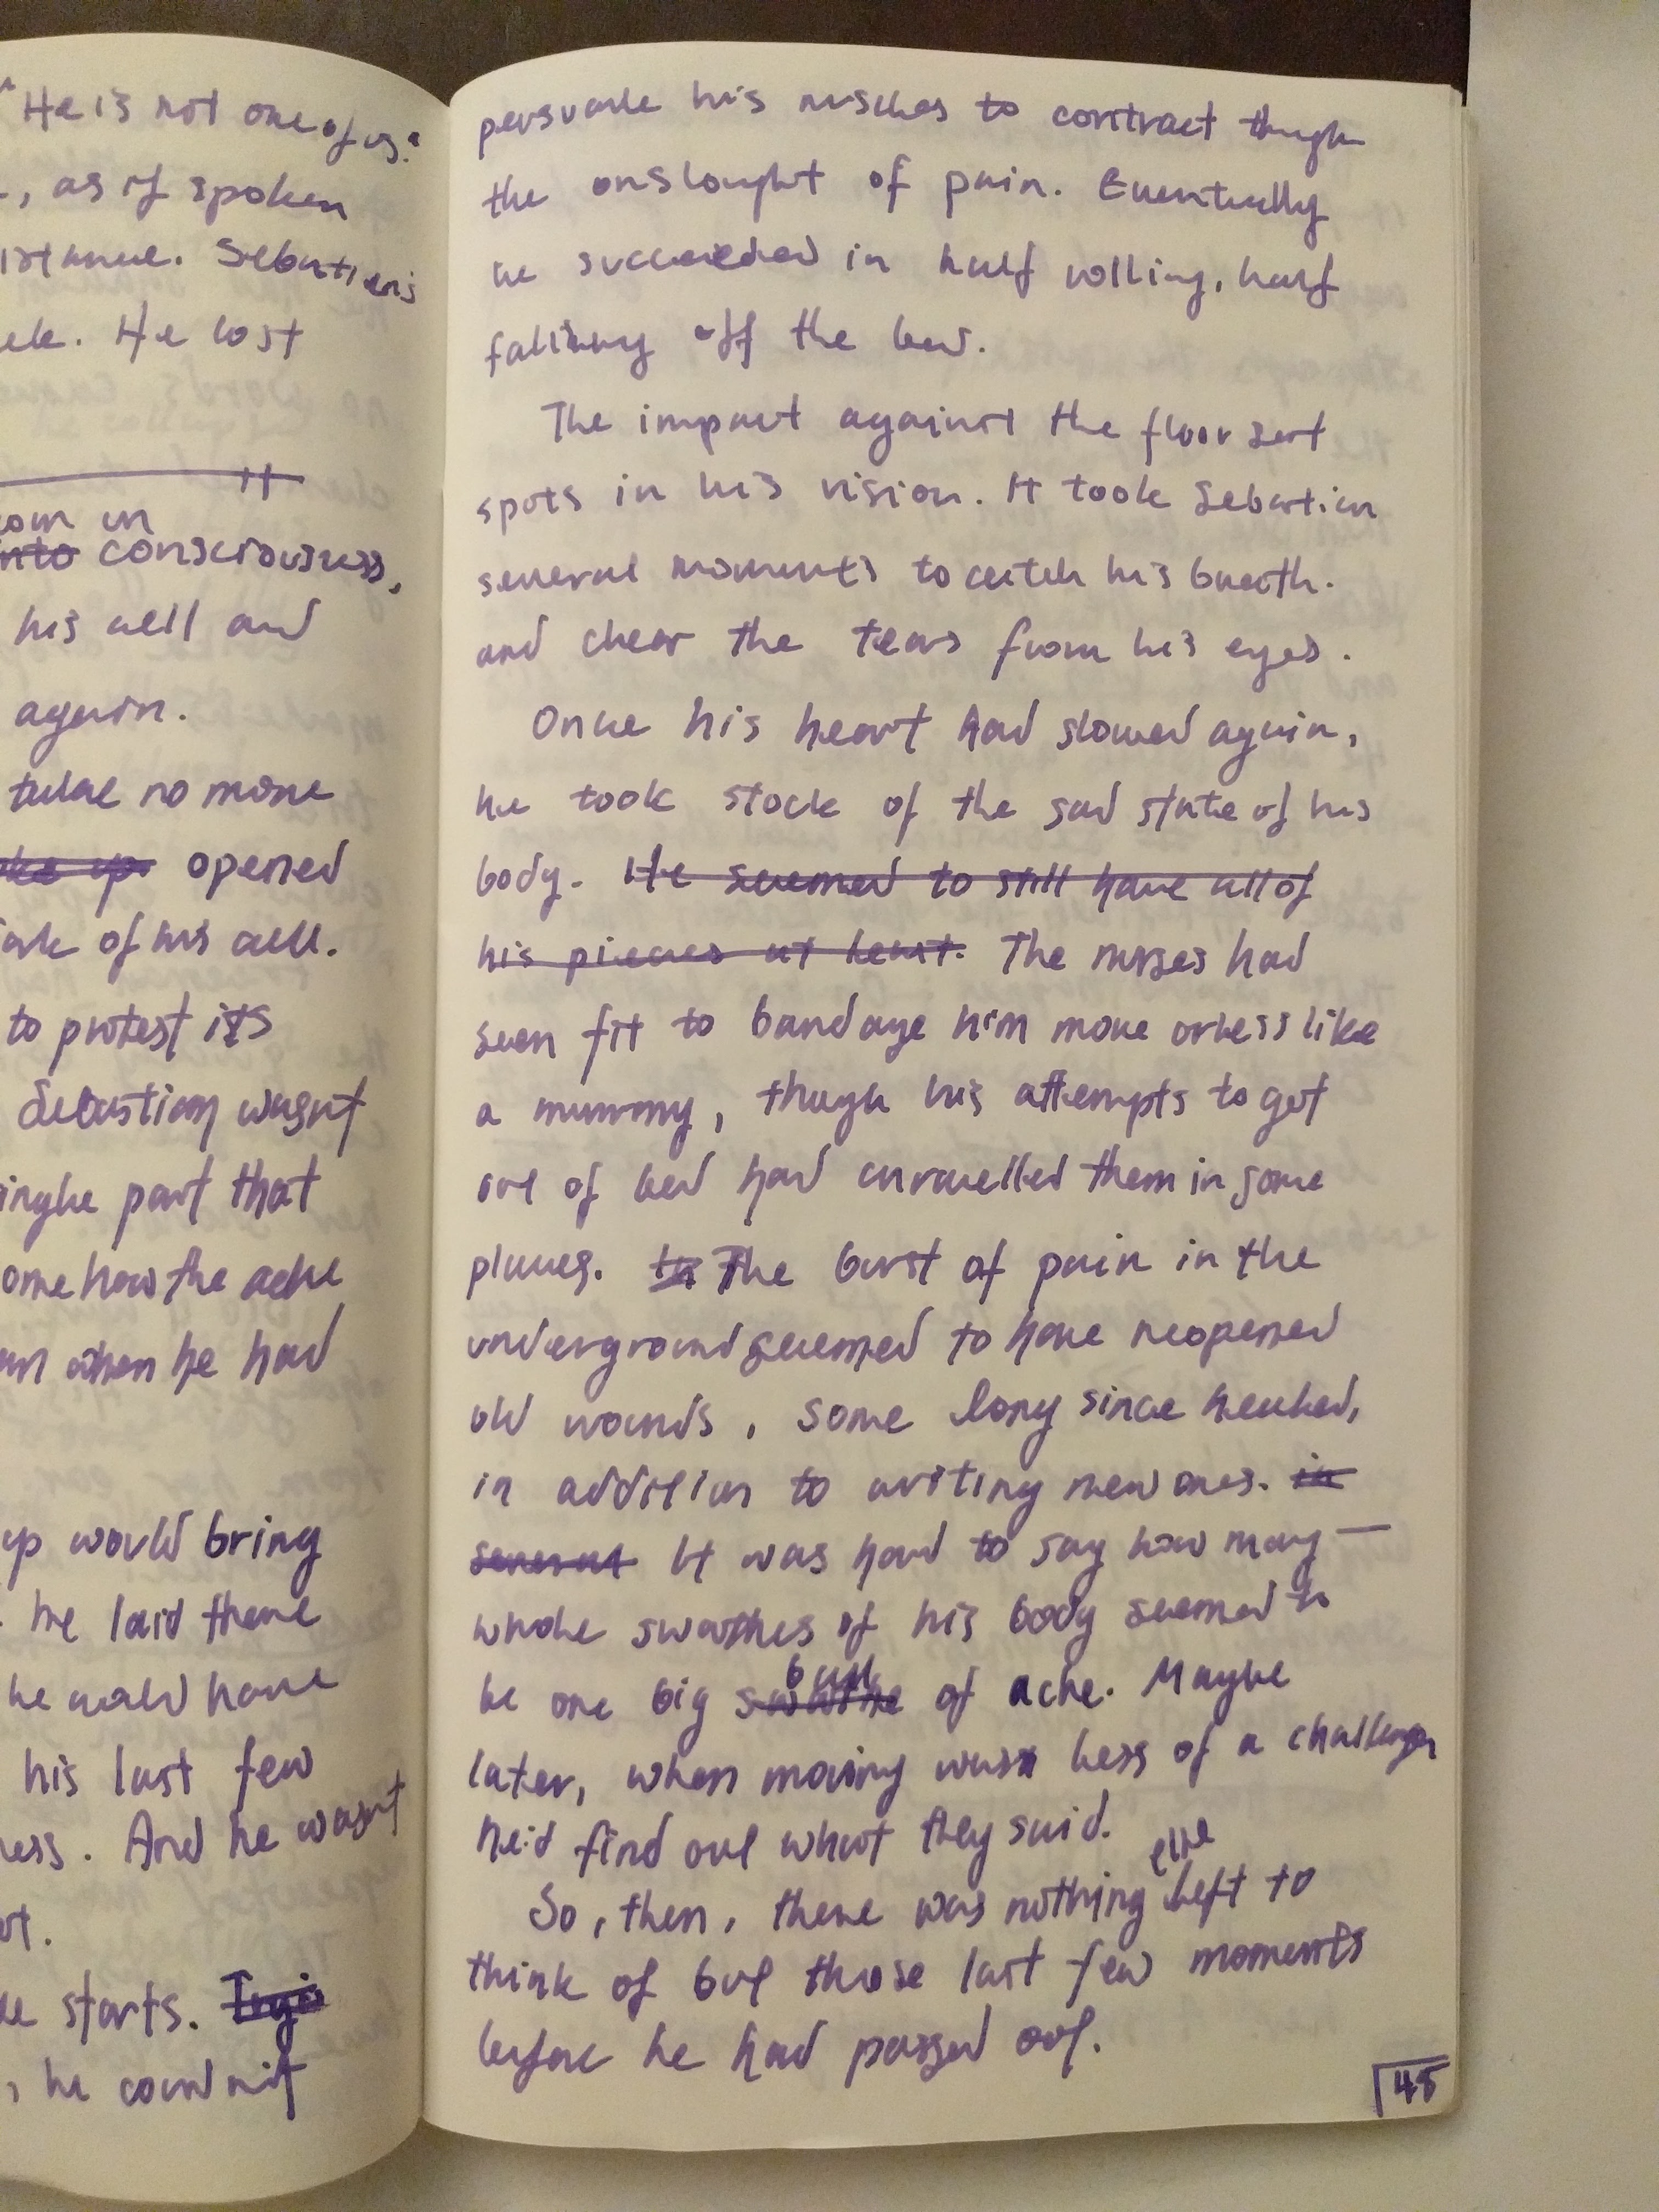 "He is not one of us."
, as if spoken
istance. Sebastien's
He lost
in
into consciousness,
his cell and
again.
take no more
opened
of his cell.
to protest its
Sebastian wasn't
single part that
omehow the ache
when he had
up would bring
he laid there
he would have
his last few
ness. And he wasn't
ot.
starts.
, he could not
persuade his muscles to contract though
the onslaught of pain. Eventually
he succeeded in half rolling, half
falling off the bed.
The impact against the floor sent
spots in his vision. It took Sebastian
several moments to catch his breath.
and clear the tears from his eyes.
Once his heart had slowed again,
he took stock of the sad state of his
body. He seemed to still have all of
his pieces at least. The nurses had
seen fit to bandage him more or less like
a mummy, though his attempts to get
out of bed had unravelled them in some
places. The burst of pain in the
underground seemed to have reopened
old wounds, some long since healed,
in addition to writing new ones. in
several It was hard to say how many —
whole swathes of his body seemed to
be one big swathe bush of ache. Maybe
later, when moving was less of a challenge
he'd find out what they said.
So, then, there was nothing else left to
think of but those last few moments
before he had passed out.
48